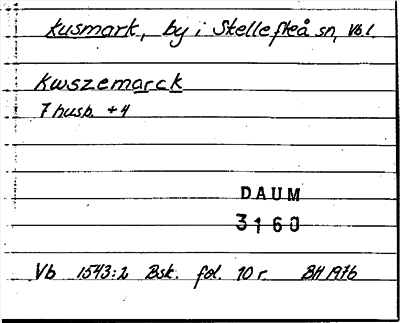 Kusmark, by i Skellefteå sn, Vb l.
Kwszemarck
7 husb. + 4
DAUM
3160
Vb 1543:2 Bsk. fol. 10 r. BH 1976